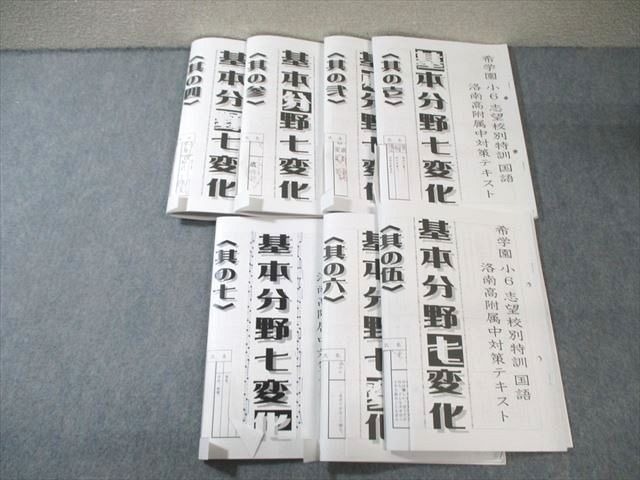 希学園 小6 志望校別特訓 国語
洛南高附属中対策テキスト
基本分野七変化
〈其の壱〉
基本分野七変化
〈其の弐〉
基本分野七変化
〈其の参〉
基本分野七変化
〈其の四〉
希学園 小6 志望校別特訓 国語
洛南高附属中対策テキスト
基本分野七変化
〈其の伍〉
基本分野七変化
〈其の六〉
基本分野七変化
〈其の七〉